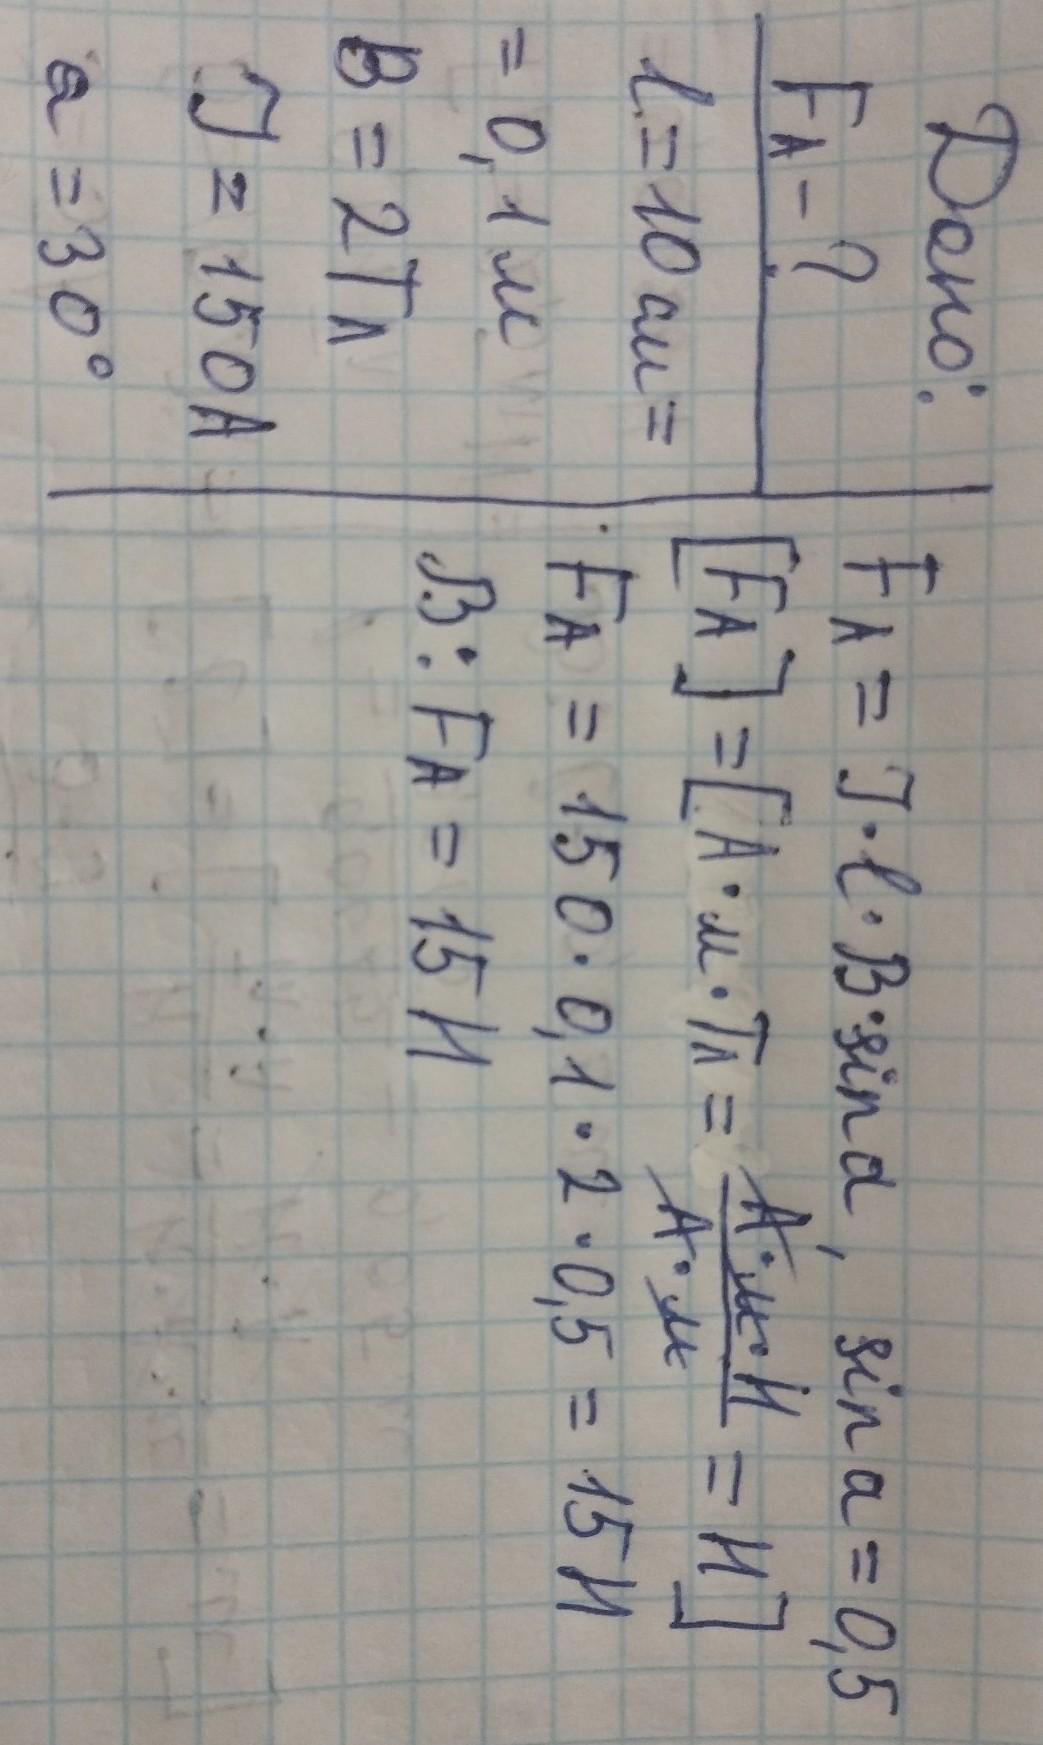 Дано:
FА - ?
l = 10 см =
= 0,1 м
B = 2 Тл
I = 150 А
a = 30°
FА = I · l · B · sin α, sin a = 0,5
[FА] = [А · м · Тл = А · м · Н / А · м = Н]
FА = 150 · 0,1 · 2 · 0,5 = 15 Н
В: FА = 15 Н